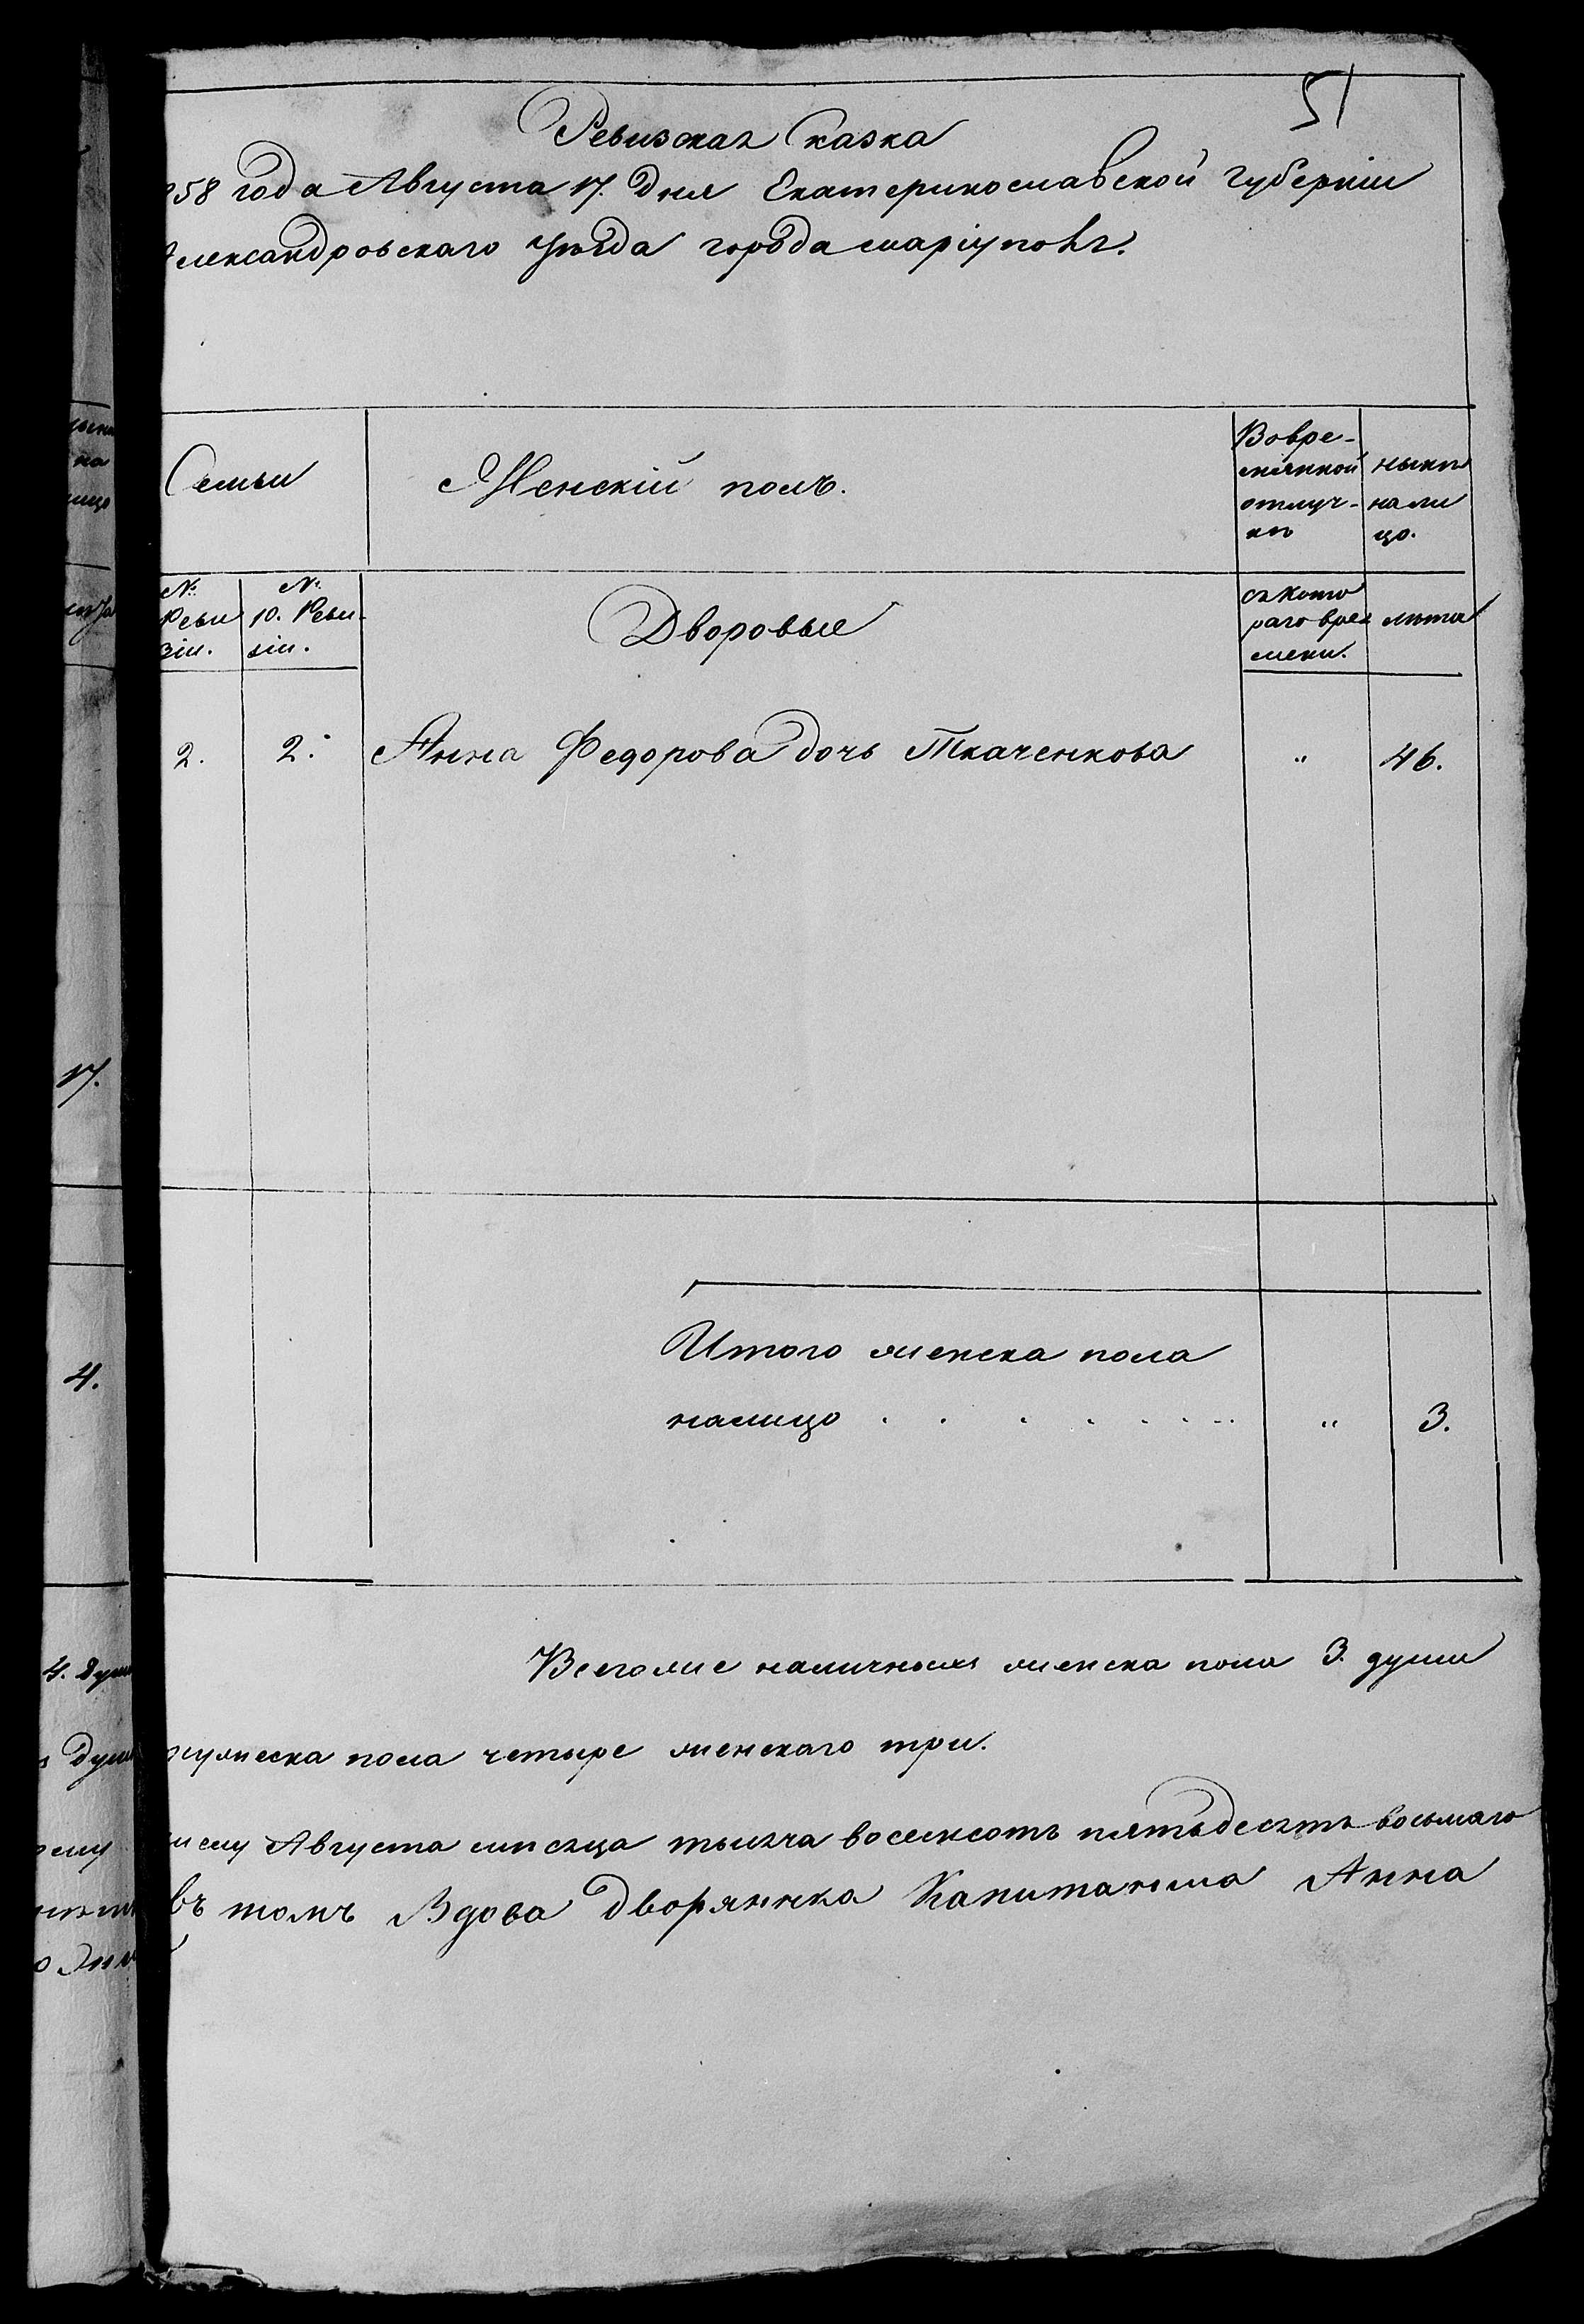 51
Ревизская Сказка
858 года Августа 17. дня Екатеринославской Губерніи
Александровскаго Уѣзда города Маріуполя.
Семьи
Женскій полъ.
Вовре-
менной
отлуч-
кѣ
нынѣ
нали
цо.
№
Реви
зіи.
№
10. Реви-
зіи.
Дворовые
съ кото
раго вре
мени.
лѣта
2. 2. Анна Федорова дочь Ткаченкова " 46.
Итого женска пола
налицо . . . . . . . " 3.
Всего же наличныхъ женска пола 3. души
мужеска пола четыре женскаго три.
Августа мѣсяца тысяча восемсотъ пятьдесятъ восьмаго
въ томъ Вдова Дворянка Капитанша Анна
17.
4.
4. душ